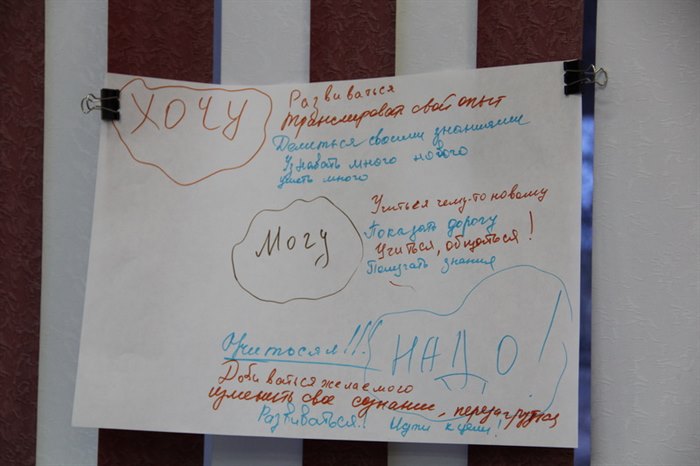 ХОЧУ
Развиваться
транслировать свой опыт
Делиться своими знаниями
Узнавать много нового
уметь много
Могу
Учиться чему-то новому
Показать дорогу
Учиться, общаться!
Получать знания
Учиться!!!
НАДО!
Добиваться желаемого
изменить своё сознание, перезагрузка
Развиваться! Идти к цели!